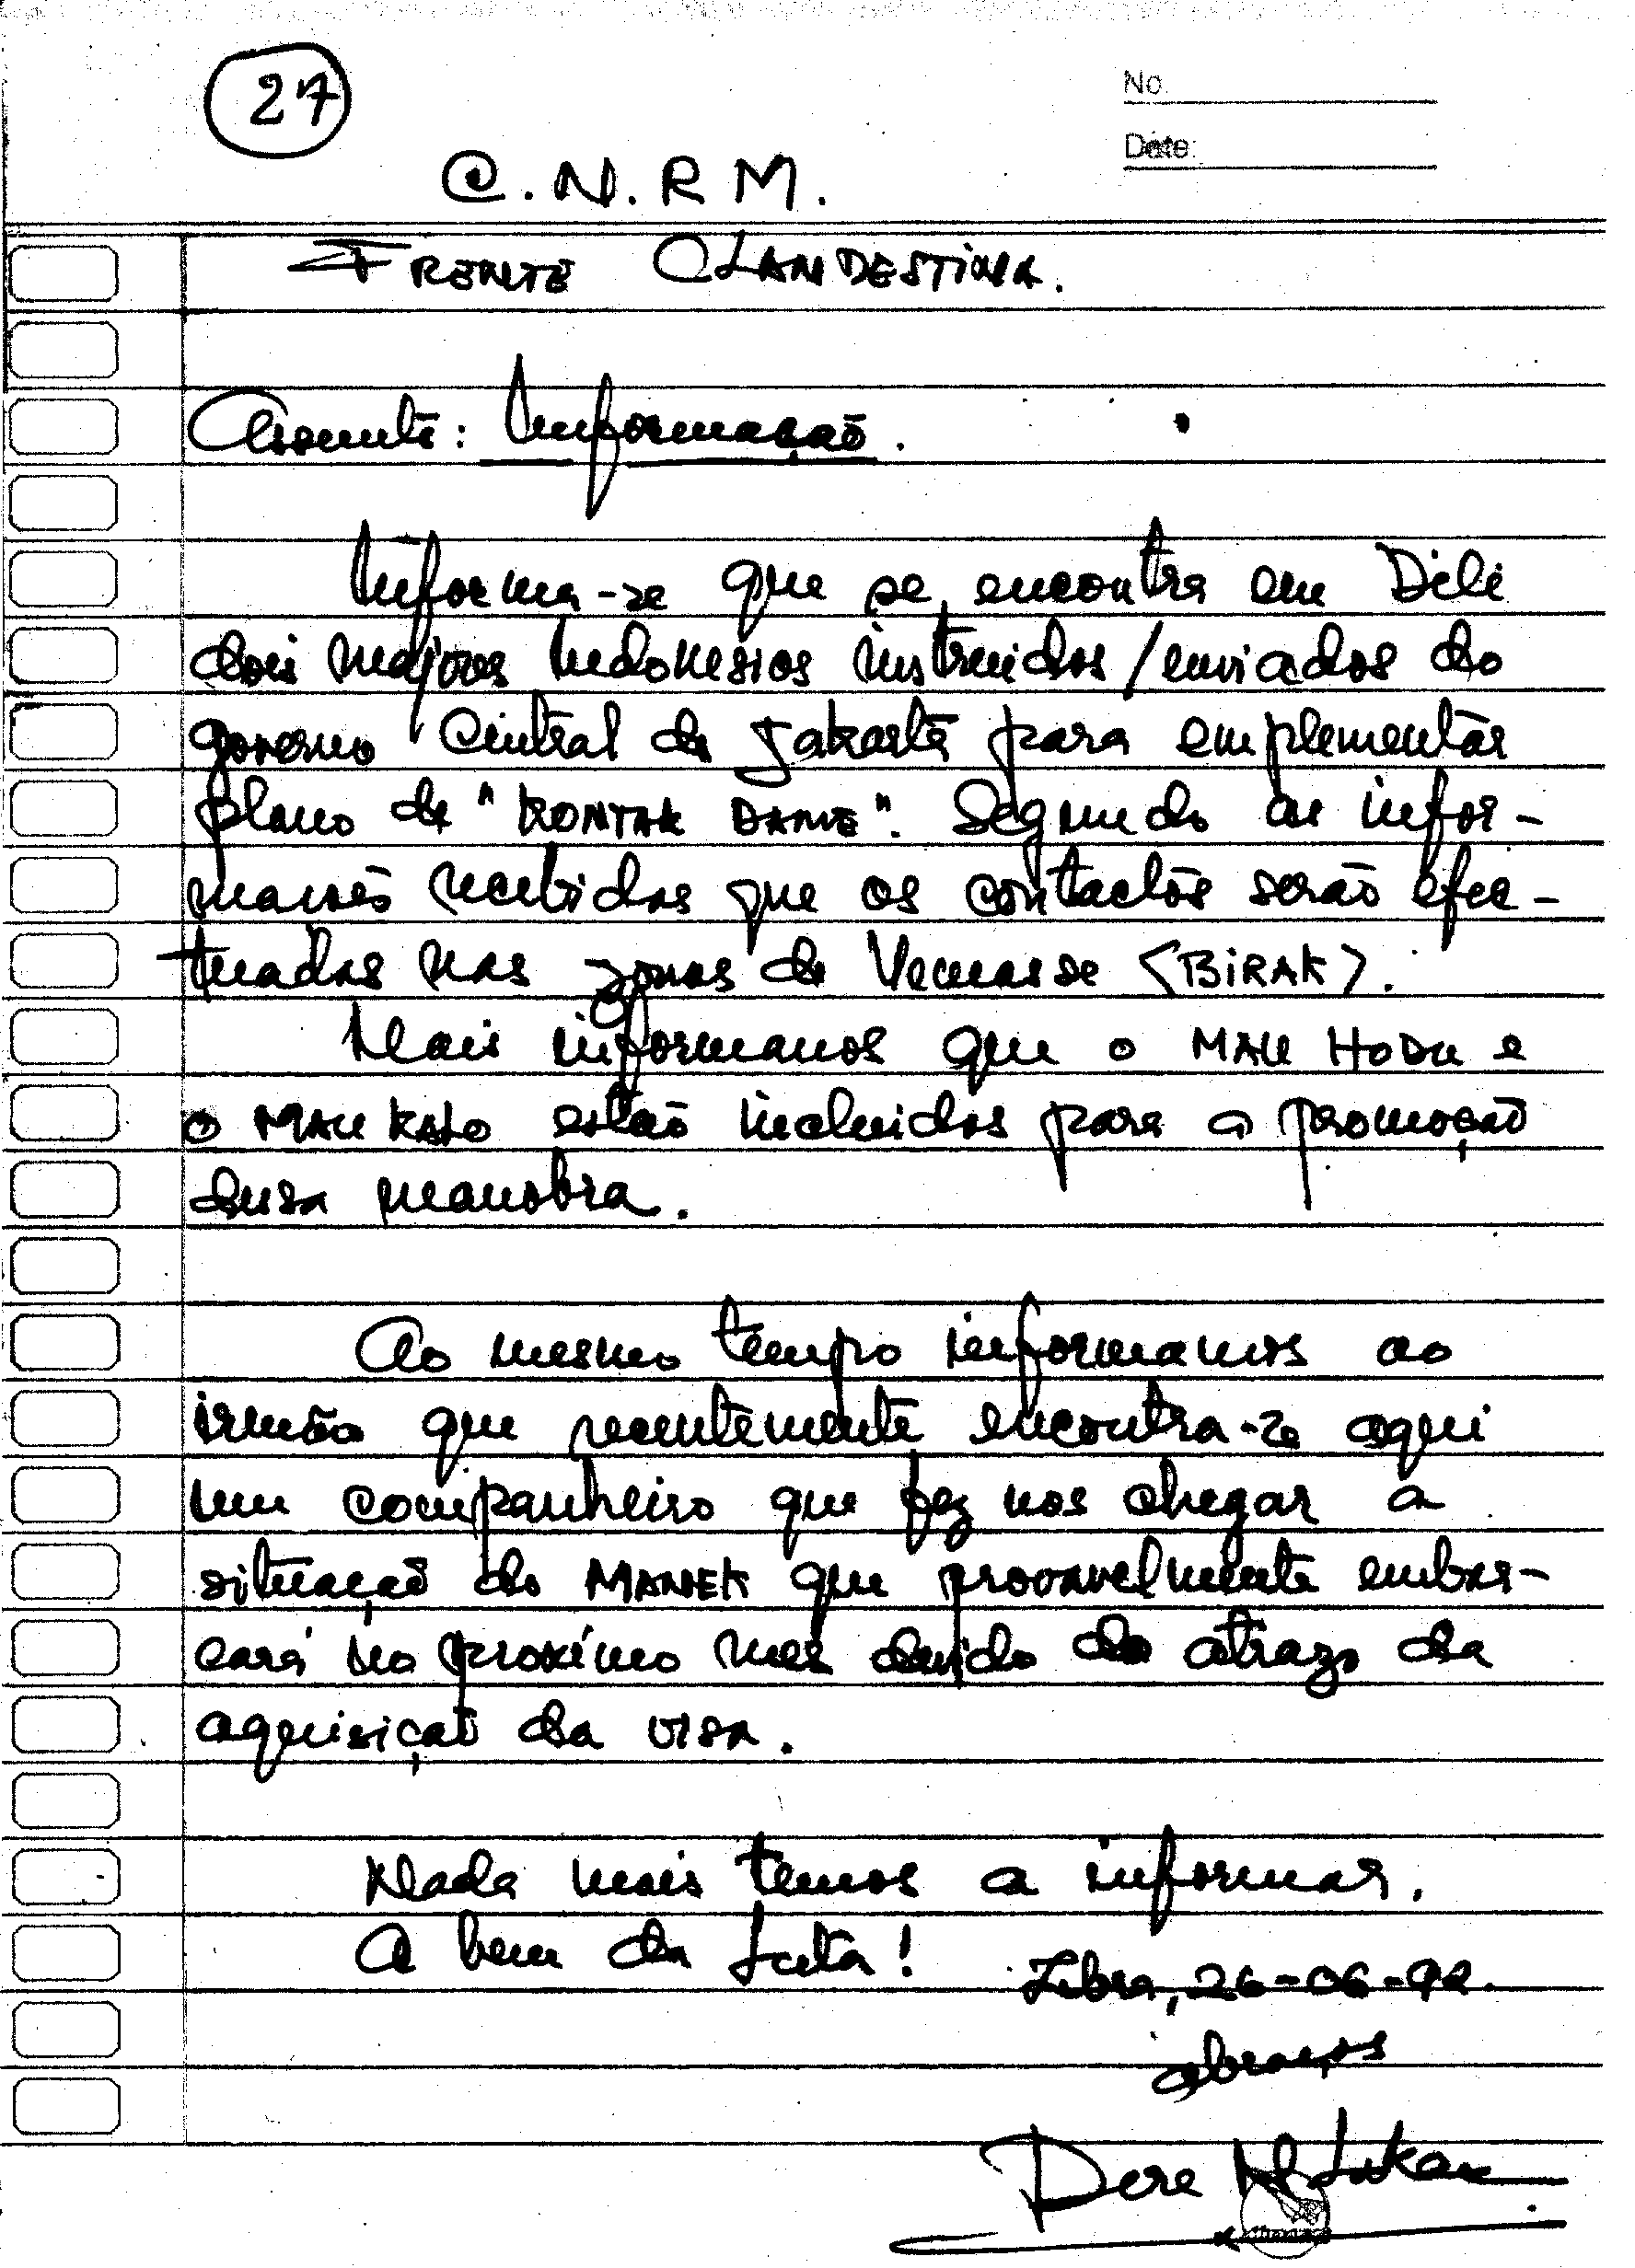 27
No.
Date:
C.N.R.M.
FRENTE CLANDESTINA.
Assunto: Informação.
Informa-se que se encontra em Dili
dois majores indonesios instruidos/enviados do
governo Central de Jakarta para emplementar
plano de "KONTAK DAME". Segundo as infor-
maroês recebidas que os contactos serão efec-
tuados nas zonas de Vemasse <BIRAK>.
Mais informanos que o MAU HODU e
o MAU KALO estão incluidos para a promoção
dessa manobra.
Ao mesmo tempo informamos ao
irmão que recentemente encontra-se aqui
um companheiro que fez nos chegar a
situação do MANEK que provavelmente embar-
cará no proximo mes devido do atrazo da
aquisição da visa.
Nada mais temos a informar.
A bem da Luta!
26-06-92.
abraços
Dere